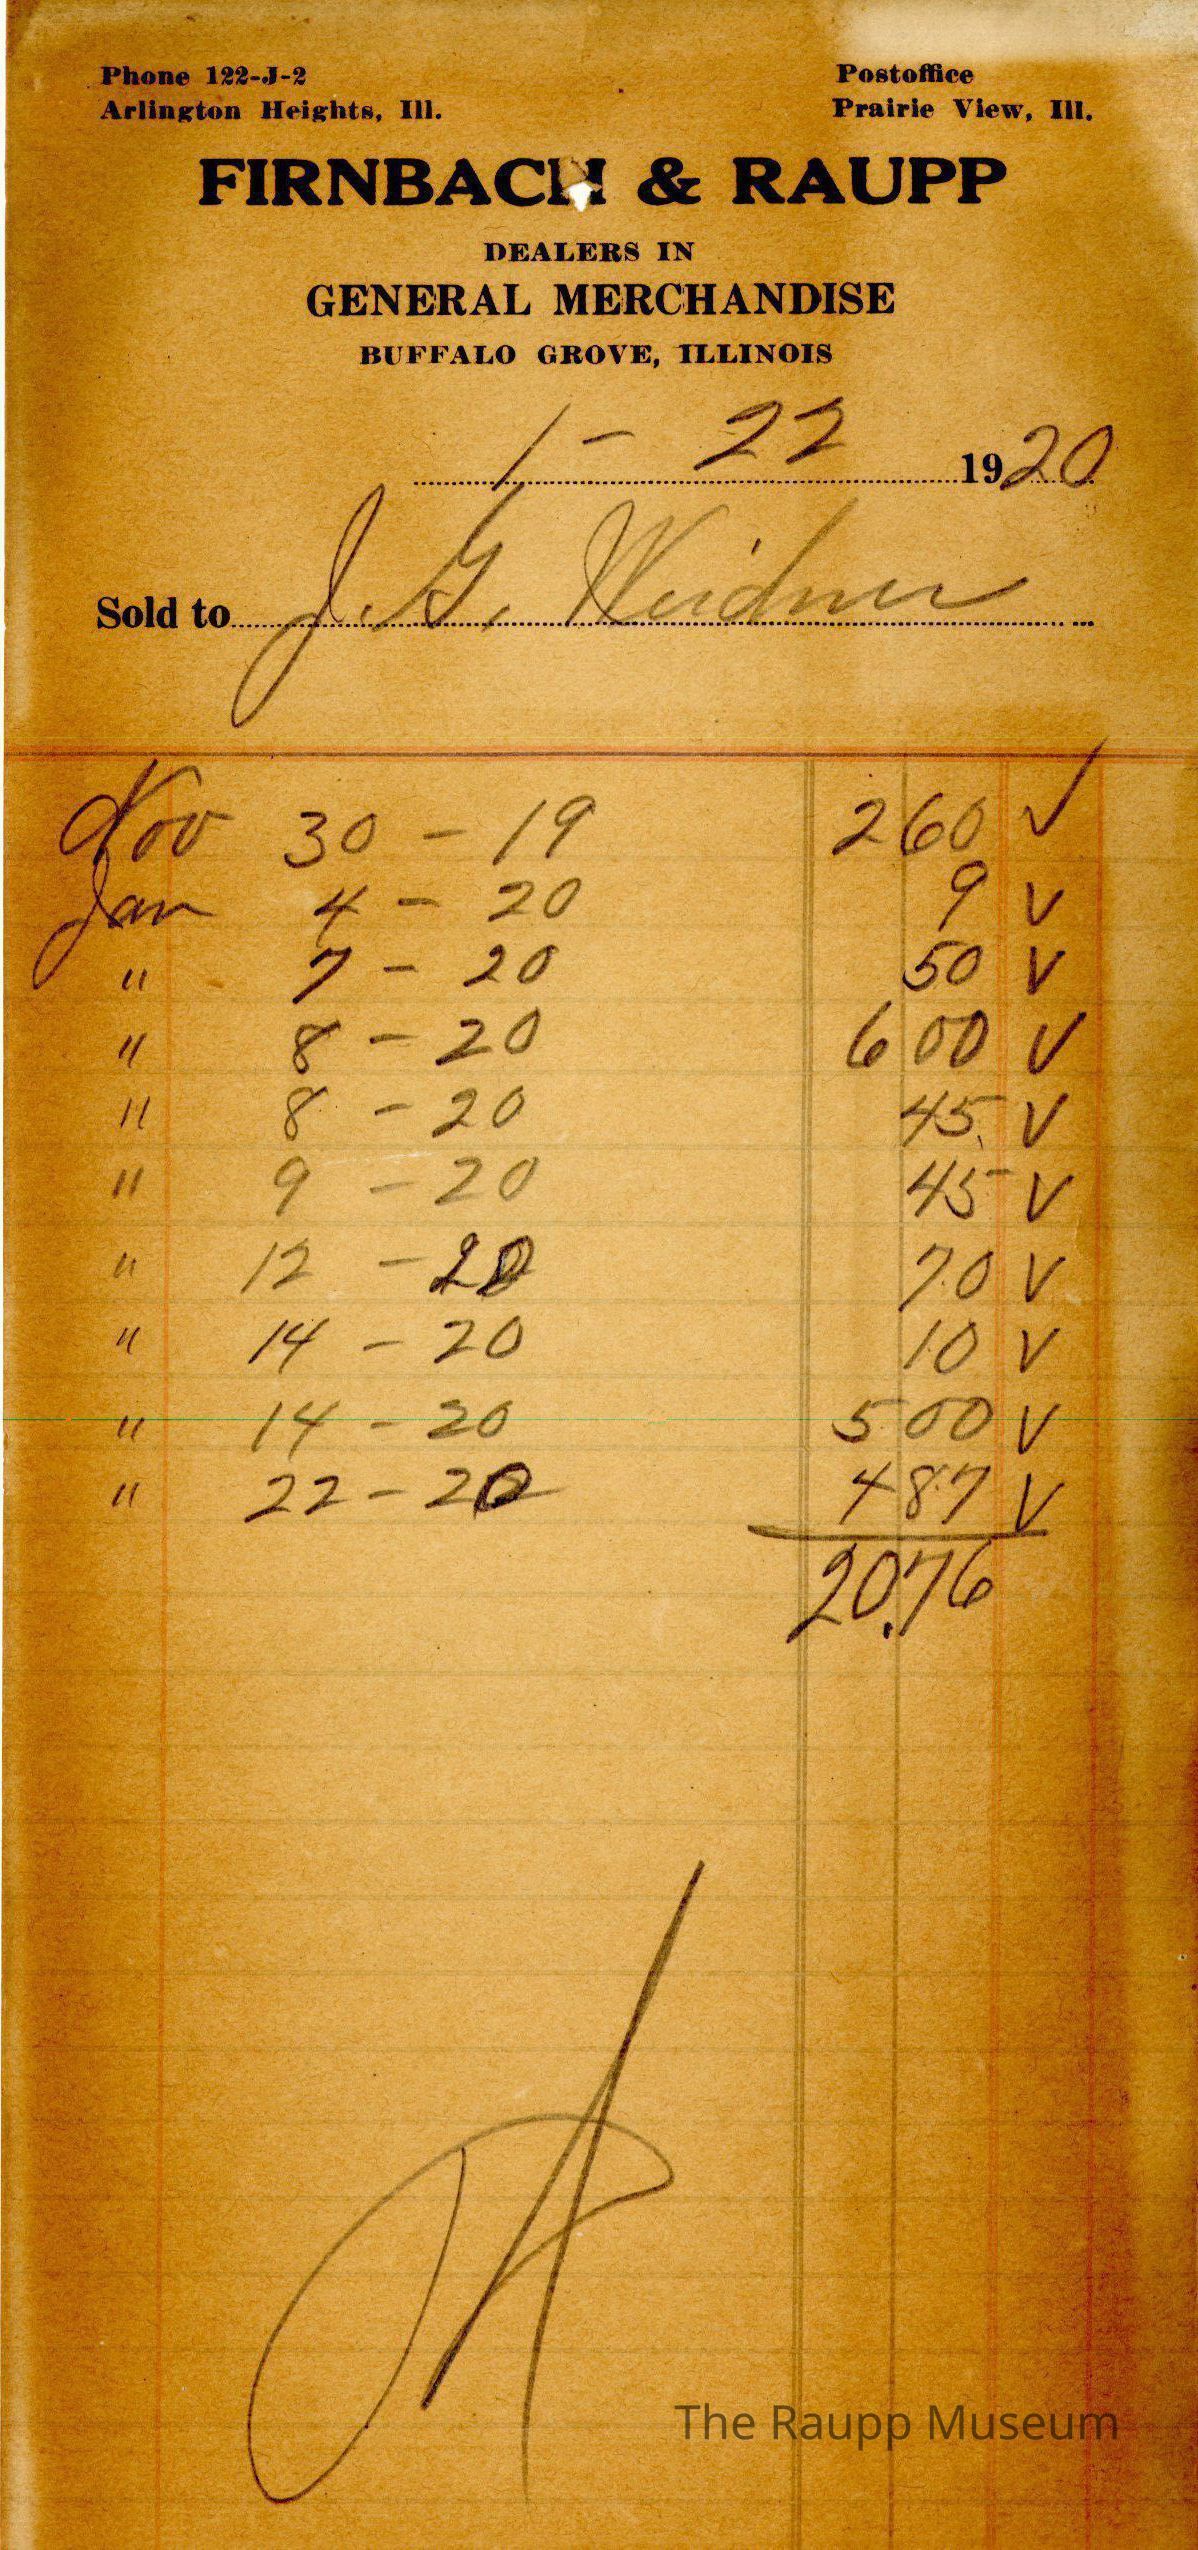 Phone 122-J-2
Arlington Heights, Ill.
Postoffice
Prairie View, Ill.
FIRNBACH & RAUPP
DEALERS IN
GENERAL MERCHANDISE
BUFFALO GROVE, ILLINOIS
1 - 22 1920
Sold to J. G. Weidner
Nov 30 - 19 2 60 ✓
Jan 4 - 20 9 ✓
" 7 - 20 50 ✓
" 8 - 20 6 00 ✓
" 8 - 20 45 ✓
" 9 - 20 45 ✓
" 12 - 20 70 ✓
" 14 - 20 10 ✓
" 14 - 20 5 00 ✓
" 22 - 20 4 87 ✓
20.76
The Raupp Museum